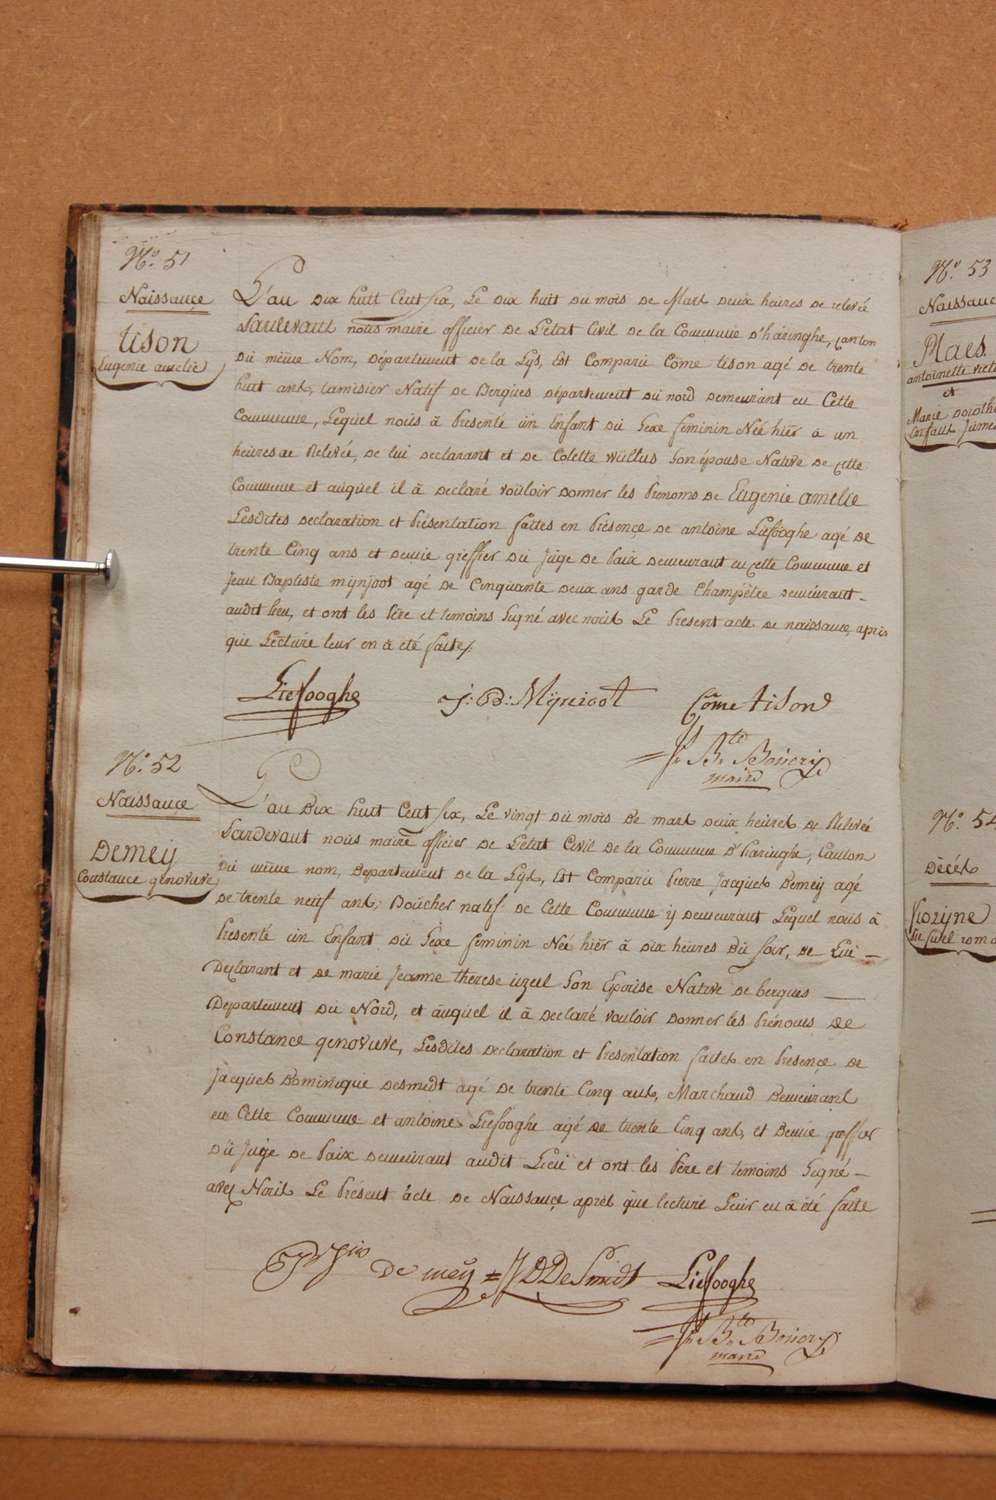 N.º 51
Naissançe
tison
Eugenie amelie
L'an Dix huit Cent six, Le dix huit du mois de Mars deux heures de relevé
Pardevant nous maire officier de L'etat Civil de la Commune d'haringhe, canton
du même Nom, departement de la Lys, Est Comparu Côme tison agé de trente
huit ans, tamisier Natif de Bergues departement du nord demeurant en Cette
Commune, Lequel nous à Presenté ün Enfant du Sexe feminin Née hier à un
heures de Relevée, de lui declarant et de Colette wullus Son épouse Native de cette
Commune et auquel il à declaré vouloir donner les Prenoms de Eugenie amelie
Lesdites declaration et Présentation faites en Présençe de antoine Liefooghe agé de
trente Cinq ans et demie greffier du Juge de Paix demeurant en cette Commune et
Jean Baptiste mijnjoot agé de Cinquante deux ans garde Champêtre demeurant
audit lieu, et ont les Père et temoins Signé avec nous Le Present acte de naissance, aprés
que Lecture leur en à été faite/.
Liefooghe
J: B: Mijnioot
Côme tison
J. Bte Bouery
maire
N.º 52
Naissançe
Demeÿ
Constance genovieve
L'an Dix huit Cent six, Le vingt du mois de mars deux heures de Relevée
Pardevant nous maire officier de L'etat Civil de la Commune d'haringhe, Canton
du même nom, departement de la Lys, Est Comparu Pierre Jacques Demeÿ agé
de trente neuf ans, Boucher natif de Cette Commune ij demeurant Lequel nous à
Presenté ün Enfant du Sexe feminin Née hier à dix heures du soir, de Lui
Declarant et de marie Jeanne therese uzeel Son Epouse Native de bergues
Departement du Nord, et auquel il à declaré vouloir donner les Prénoms de
Constance genovieve, Lesdites declaration et Presentation faites en Presençe de
Jacques Dominique desmedt agé de trente Cinq ans, Marchand Demeurant
en Cette Commune et antoine Liefooghe agé de trente Cinq ans, et Demie greffier
du Juge de Paix demeurant audit Lieu et ont les Père et temoins Signé
avec Nous Le Présent acte de Naissançe aprés que lecture Leur en à été faite
De meÿ
J D De Smidt
Liefooghe
J. Bte Bouery
maire
N.º 53
Naissanc
Maes
antoinette vict
et
Marie dorothe
Enfans Jume
N.º 54
Décés